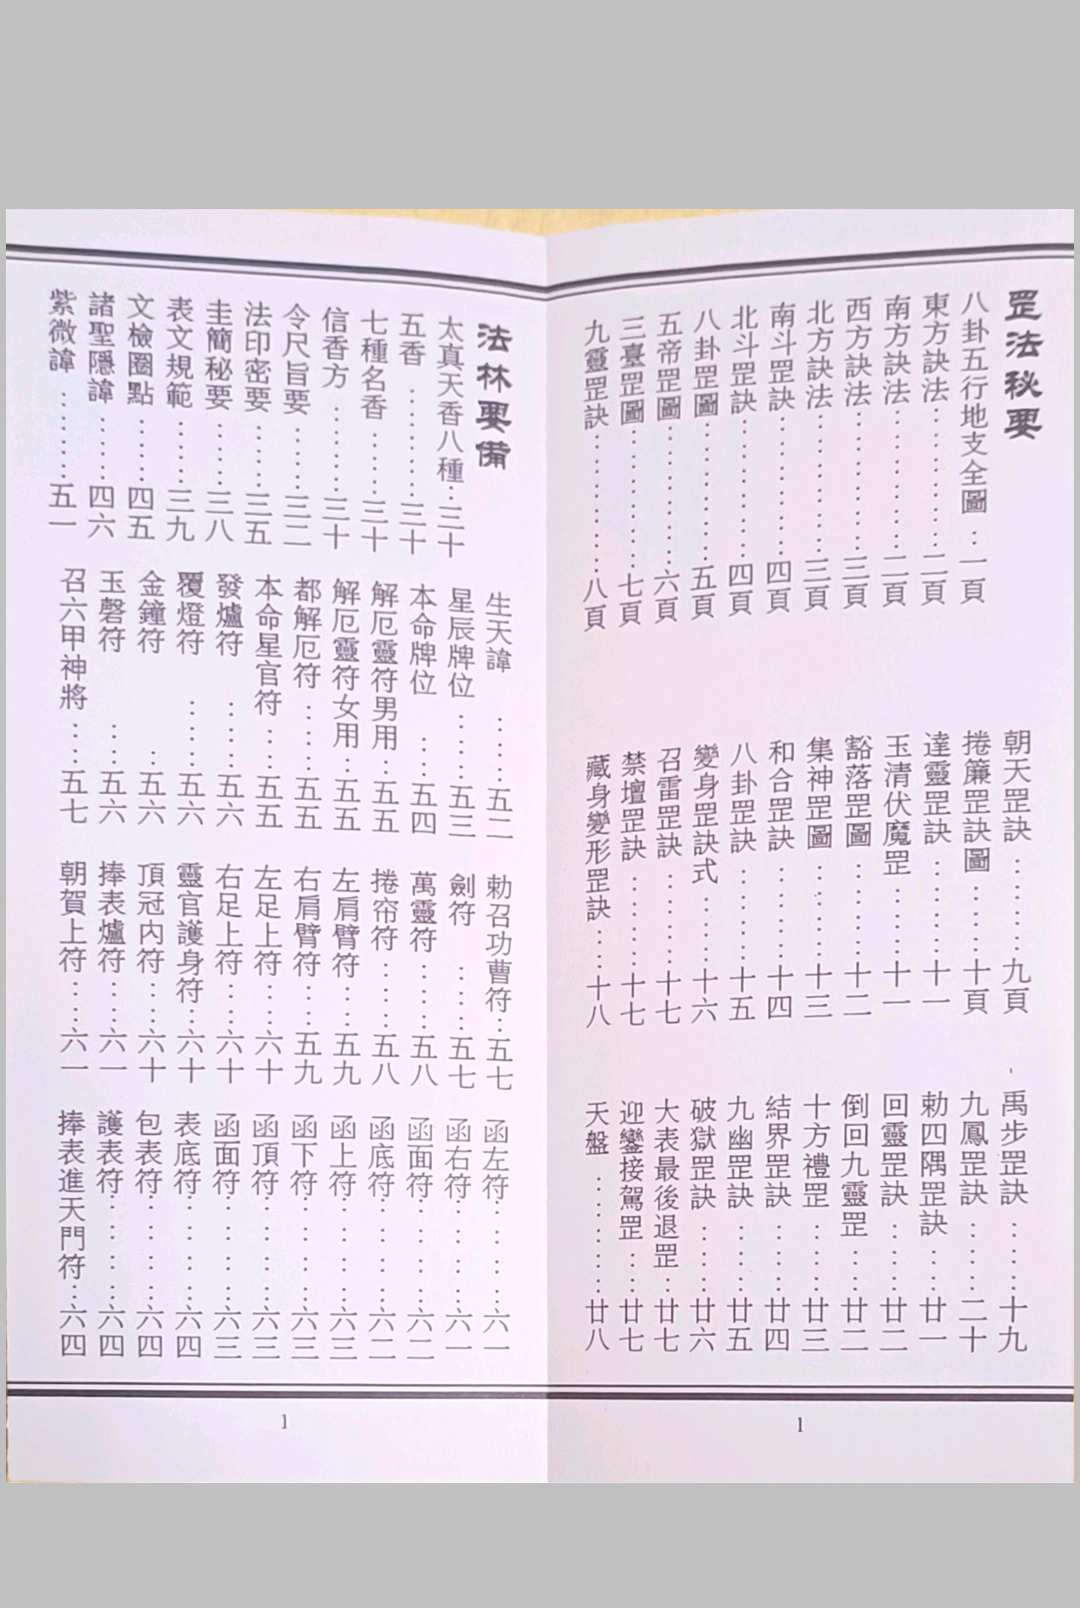 罡法秘要
八卦五行地支全圖……一頁
東方訣法……二頁
南方訣法……二頁
西方訣法……三頁
北方訣法……三頁
南斗罡訣……四頁
北斗罡訣……四頁
八卦罡圖……五頁
五帝罡圖……六頁
三臺罡圖……七頁
九靈罡訣……八頁
朝天罡訣……九頁
捲簾罡訣圖……十頁
達靈罡訣……十一
玉清伏魔罡……十一
豁落罡圖……十二
集神罡圖……十三
和合罡訣……十四
八卦罡訣……十五
變身罡訣式……十六
召雷罡訣……十七
禁壇罡訣……十七
藏身變形罡訣……十八
禹步罡訣……十九
九鳳罡訣……二十
勅四隅罡訣……廿一
回靈罡訣……廿二
倒回九靈罡……廿二
十方禮罡……廿三
結界罡訣……廿四
九幽罡訣……廿五
破獄罡訣……廿六
大表最後退罡……廿七
迎鑾接駕罡……廿七
天盤……廿八
1
法林要備
太真天香八種……三十
五香……三十
七種名香……三十
信香方……三十
令尺旨要……三二
法印密要……三五
圭簡秘要……三八
表文規範……三九
文檢圈點……四五
諸聖隱諱……四六
紫微諱……五一
生天諱……五二
星辰牌位……五三
本命牌位……五四
解厄靈符男用……五五
解厄靈符女用……五五
都解厄符……五五
本命星官符……五五
發爐符……五六
覆燈符……五六
金鐘符……五六
玉磬符……五六
召六甲神將……五七
勅召功曹符……五七
劍符……五七
萬靈符……五八
捲帘符……五八
左肩臂符……五九
右肩臂符……五九
左足上符……六十
右足上符……六十
靈官護身符……六十
頂冠內符……六十
捧表爐符……六一
朝賀上符……六一
函左符……六一
函右符……六一
函面符……六二
函底符……六二
函上符……六三
函下符……六三
函頂符……六三
函面符……六三
表底符……六四
包表符……六四
護表符……六四
捧表進天門符……六四
1